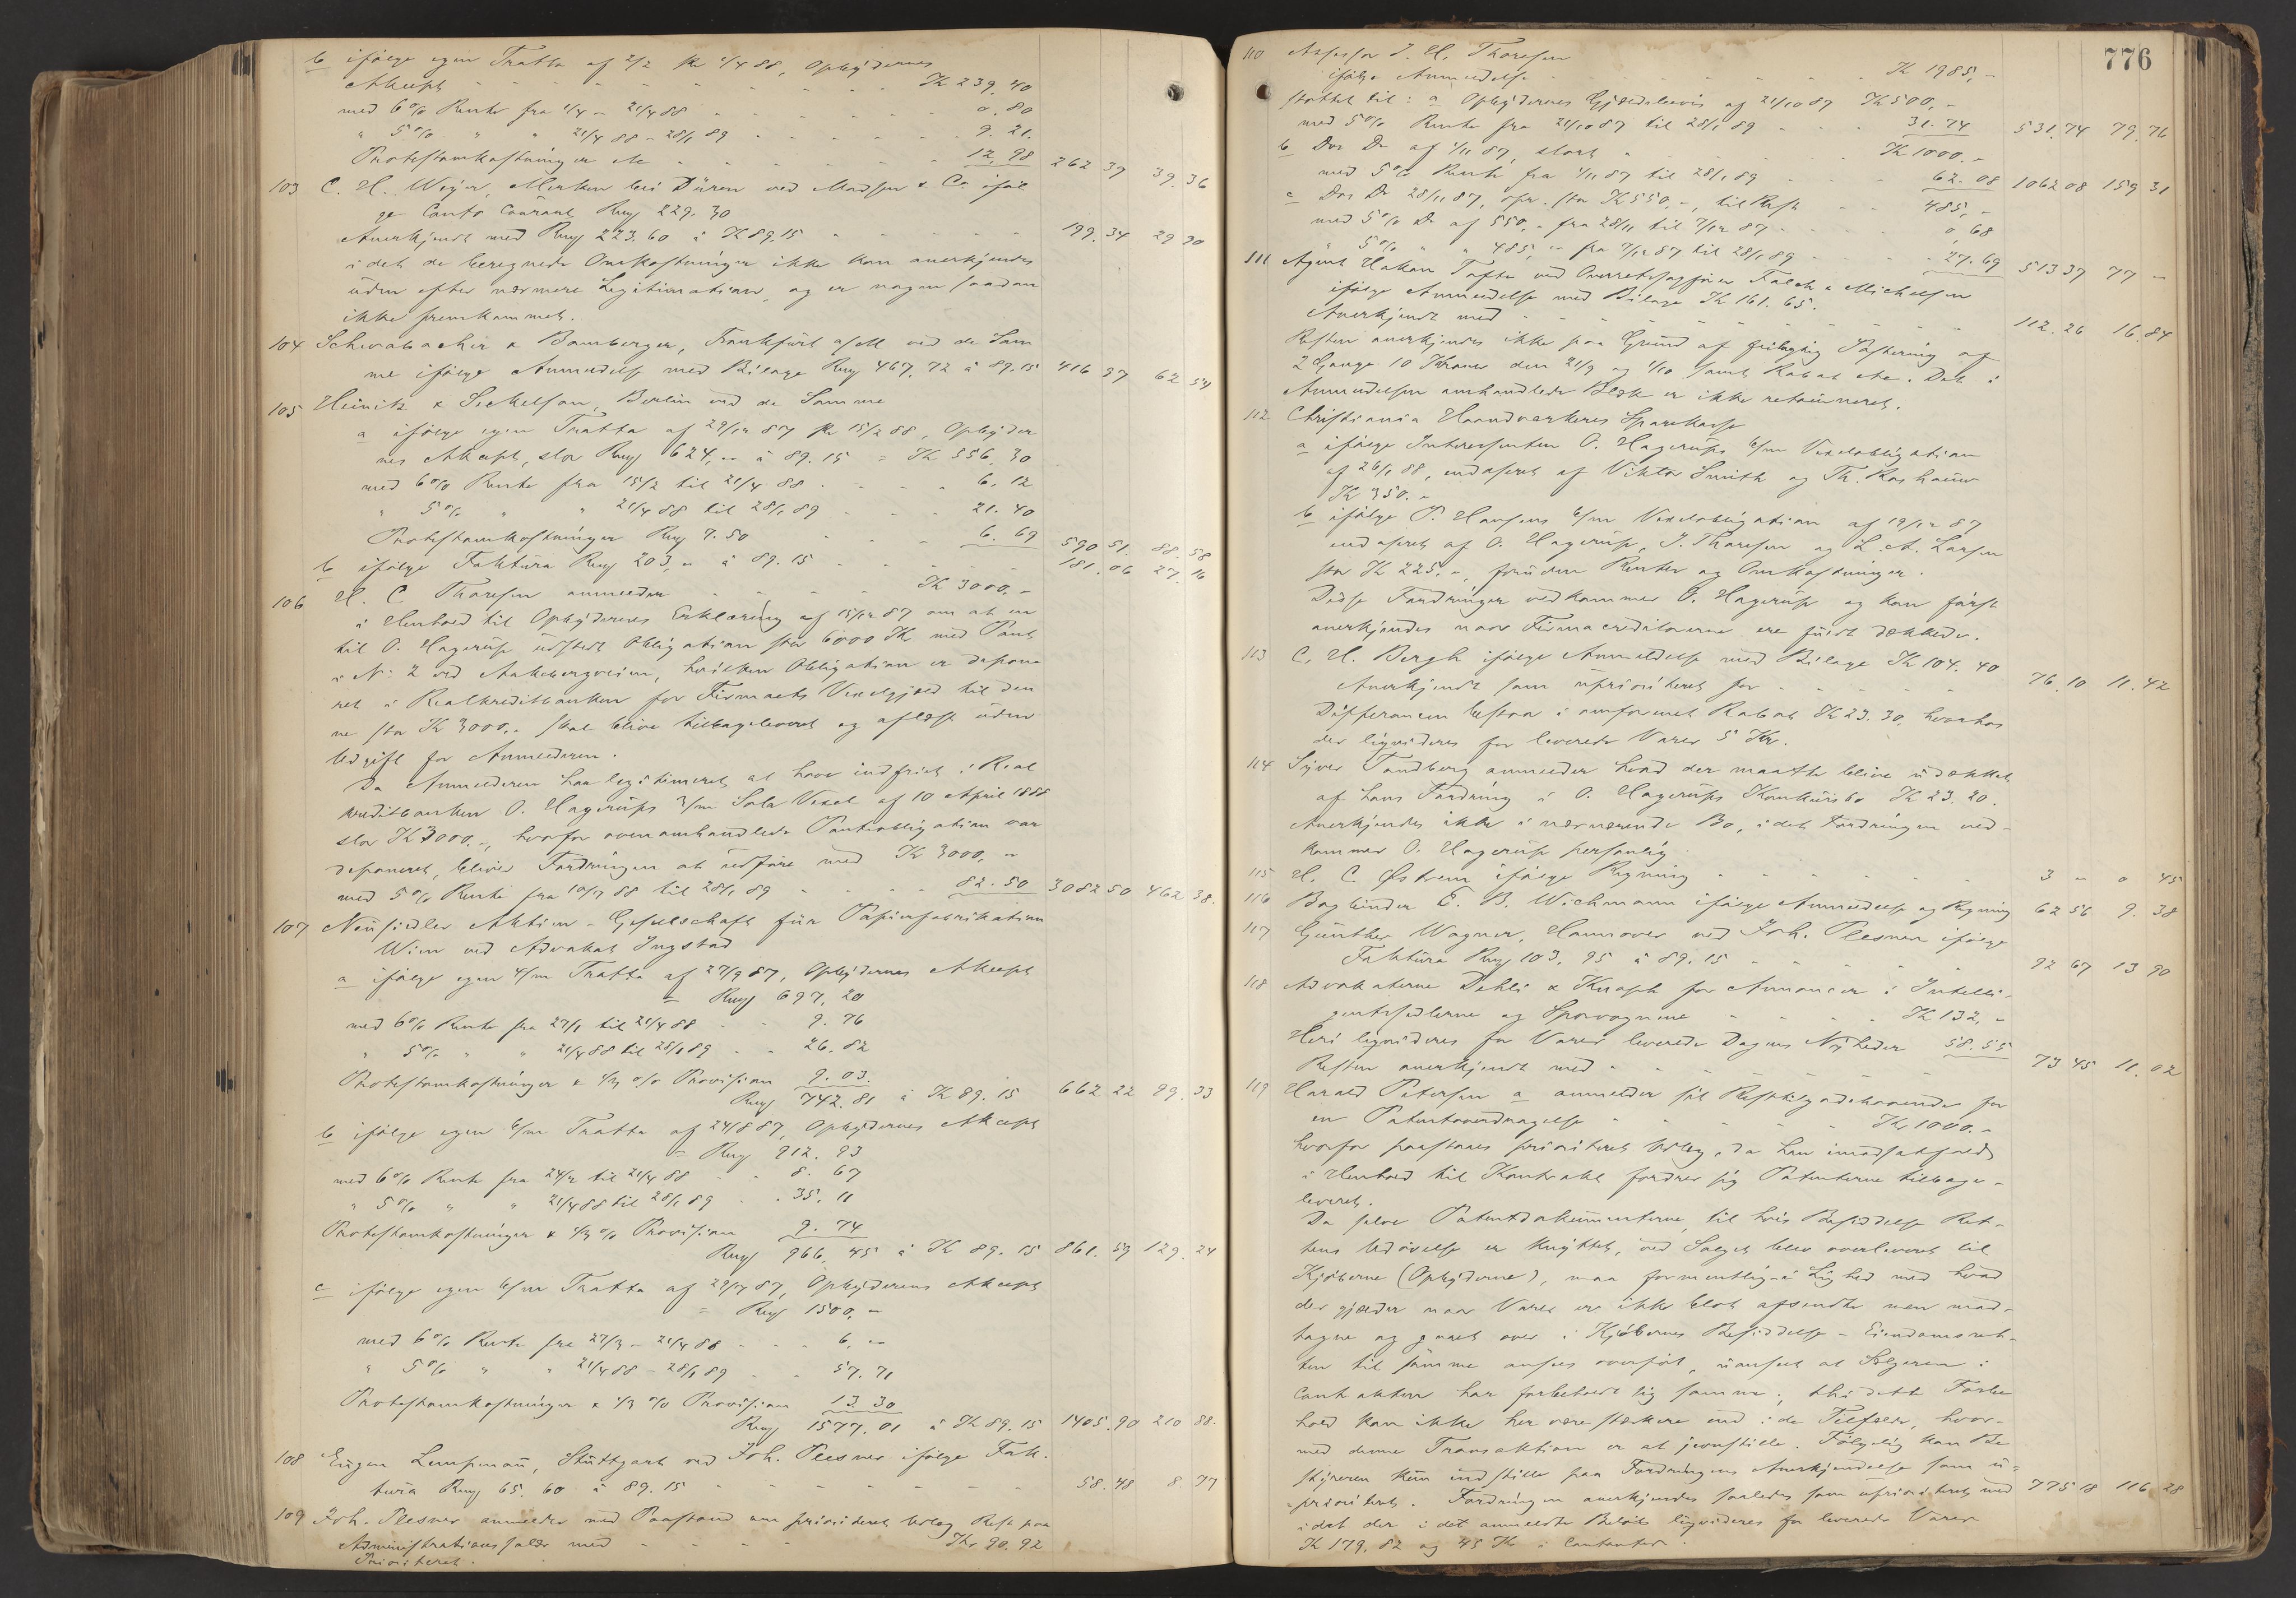 b ifølge egen Tratta af 2/2 pr 2/4 88, Opbydernes
Akcept - - - Kr 239. 40
med 6% Rente fra 2/4 - 21/4 88 - - 0. 80
" 5% " " 21/4 88 - 28/1 89 - - 9. 21.
Protestomkostninger etc - - 12. 98 262 39 39. 36
103 C. H. Weyer, Merken bei Düren ved Madsen & Co iføl
ge Conto Courant Rmf 229. 30
Anerkjendt med Rmf 223. 60 à Kr 89.15 - - 199. 34 29 90
idet de beregnede Omkostninger ikke kan anerkjendes
uden efter nærmere Legitimation, og er nogen saadan
ikke fremkommet.
104 Schwabacher & Bamberger, Frankfurt a/M ved de Sam
me ifølge Anmeldelse med Bilage Rmf 467. 72 à 89.15 416 97 62 54
105 Heinitz & Seckelson, Berlin ved de Samme
a ifølge egen Tratta af 29/12 87 pr 15/2 88, Opbyder
nes Akcept, stor Rmf 624, " à 89. 15 = Kr 556. 30
med 6% Rente fra 15/2 til 21/4 88 - - 6. 12
" 5% " " 21/4 88 til 28/1 89 - - 21. 40
Protestomkostninger Rmf 7. 50 - - 6. 69 590 51. 88. 58
b ifølge Faktura Rmf 203, " à 89. 15 - - 181. 06 27. 16
106 H. C. Thoresen anmelder - - Kr 3000, -
i Henhold til Opbydernes Erklæring af 15/12 87 om at en
til O. Hagerup udstedt Obligation stor 6000 Kr med Pant
i No 2 ved Akebergveien, hvilken Obligation er depone
ret i Realkreditbanken for Firmaets Vexelgjæld til den
ne stor Kr 3000, - skal blive tilbageleveret og aflæst uden
Udgift for Anmelderen.
Da Anmelderen har legitimeret at have indfriet i Real
kreditbanken O. Hagerups 3/m Sola Vexel af 10 April 1888
stor Kr 3000, -, hvorfor ovenomhandlede Pantobligation var
deponeret, bliver Fordringen at udføre med Kr 3000, -
med 5% Rente fra 10/7 88 til 28/1 89 - - 82. 50 3082 50 462 38.
107 Neusiedler Aktien-Gesellschaft für Papierfabrikation
Wien ved Advokat Ingstad
a ifølge egen 4/m Tratta af 27/9 87, Opbydernes Akcept
= Rmf 697. 20
med 6% Rente fra 27/1 til 21/4 88 - - 9. 76
" 5% " " 21/4 88 til 28/1 89 - - 26. 82
Protestomkostninger & 1/3 % Provision 9. 03.
Rmf 742. 81 à Kr 89. 15 662 22 99. 33
b ifølge egen 6/m Tratta af 24/8 87, Opbydernes Akcept
= Rmf 912. 93
med 6% Rente fra 24/2 til 21/4 88 - - 8. 67
" 5% " " 21/4 88 til 28/1 89 - - 35. 11
Protestomkostninger & 1/3 % Provision 9. 74
Rmf 966, 45 à Kr 89. 15 861. 59 129. 24
c ifølge egen 6/m Tratta af 29/9 87, Opbydernes Akcept
= Rmf 1500, -
med 6% Rente fra 27/3 - 21/4 88 - - 6, "
" 5% " " 21/4 88 - 28/1 89 - - 57. 71
Protestomkostninger & 1/3 % Provision 13 30
Rmf 1577. 01 à Kr 89. 15 1405. 90 210 88.
108 Eugen Lempenau, Stuttgart ved Joh. Plesner ifølge Fak-
tura Rmf 65. 60 à 89. 15 - - 58. 48 8. 77
109 Joh. Plesner anmelder med Paastand om prioriteret Udlæg Rest paa
Administrationssalær med - - Kr 90. 92
Prioriteret.
776
110 Assessor J. H. Thoresen
ifølge Anmeldelse - - Kr 1985, -
støttet til: a Opbydernes Gjældsbevis af 21/10 87 Kr 500, -
med 5% Rente fra 21/10 87 til 28/1 89 - - 31. 74 531. 74 79. 76
b Dos Do af 1/11 87, stort " - - Kr 1000. -
med 5% Rente fra 1/11 87 til 28/1 89 - - 62. 08 1062 08 159 31
c Dos Do 28/11 87, opr. stor Kr 550, -, til Rest - - 485, -
med 5% Do af 550, - fra 28/11 til 7/12 87 - - 0, 68
5% " " 485, - fra 7/12 87 til 28/1 89 - - 27. 69 513 37 77 -
111 Agent Hakon Tofte ved Overretssagfører Falch & Michelsen
ifølge Anmeldelse med Bilage Kr 161. 65.
Anerkjendt med - - 112. 26 16. 84
Resten anerkjendes ikke paa Grund af feilagtig Postering af
2 Gange 10 Kroner den 21/9 og 1/10 samt Rabat etc. Det i
Anmeldelsen omhandlede Blæk er ikke retourneret.
112 Christiania Haandværkeres Sparekasse
a ifølge Interessenten O. Hagerups 6/m Vexelobligation
af 26/1 88, endosseret af Viktor Smith og Th. Roshauw
Kr 350. -
b ifølge P. Hansens 6/m Vexelobligation af 19/12 87
endosseret af O. Hagerup, J. Thoresen og L. A. Larsen
stor Kr 225, -, foruden Renter og Omkostninger.
Disse Fordringer vedkommer O. Hagerup og kan først
anerkjendes naar Firmacreditorerne ere fuldt dækkede.
113 C. H. Bergh ifølge Anmeldelse med Bilage Kr 104. 40
Anerkjendt som uprioriteret for - - 76. 10 11. 42
Differencen bestaar i omforenet Rabat Kr 23. 30. hvorhos
der ligvideres for leverede Varer 5 Kr.
114 Syver Sandberg anmelder hvad der maatte blive udækket
af hans Fordring i O. Hagerups Konkursbo Kr 23. 20.
Anerkjendes ikke i nærværende Bo, idet Fordringen ved-
kommer O. Hagerup personlig
115 H. C. Østrem ifølge Regning - - 3 - 0 45
116 Bogbinder E. B. Wichmann ifølge Anmeldelse og Regning 62 56 9. 38
117 Günther Wagner, Hannover ved Joh. Plesner ifølge
Faktura Rmf 103, 95 à 89. 15 - - 92 67 13 90
118 Advokaterne Dehli & Knoph for Annoncer i Intelli-
gentssedlerne og Sporvognene - - Kr 132, -
Heri ligvideres for Varer leverede Dagens Nyheder 58. 55
Resten anerkjendt med - - 73 45 11. 02
119 Harald Petersen a anmelder sit Resttilgodehavende for
en Patentoverdragelse - - Kr 1000. -
hvorfor paastaaes prioriteret Udlæg, da han imodsatfald
i Henhold til Kontrakt fordrer sig Patenterne tilbage-
leveret.
Da selve Patentdokumenterne, til hvis Besiddelse Ret-
tens Udøvelse er knyttet, ved Salget blev overleveret til
Kjøberne (Opbyderne), maa formentlig i Lighed med hvad
der gjælder naar Varer er ikke blot afsendte men mod-
tagne og gaaet over i Kjøbernes Besiddelse - Eiendomsret-
ten til samme ansees overført, uanseet at Sælgeren i
Contrakten har forbeholdt sig samme, thi dette Forbe
hold kan ikke her være stærkere end i de Tilfælde, hvor-
med denne Transaktion er at jevnstille. Følgelig kan Be
styreren kun indstille paa Fordringens Anerkjendelse som u-
prioriteret. Fordringen anerkjendes saaledes som uprioriteret med 775 18 116 28
idet der i det anmeldte Beløb ligvideres for leverede Varer
Kr 179. 82 og 45 Kr i Contanter.